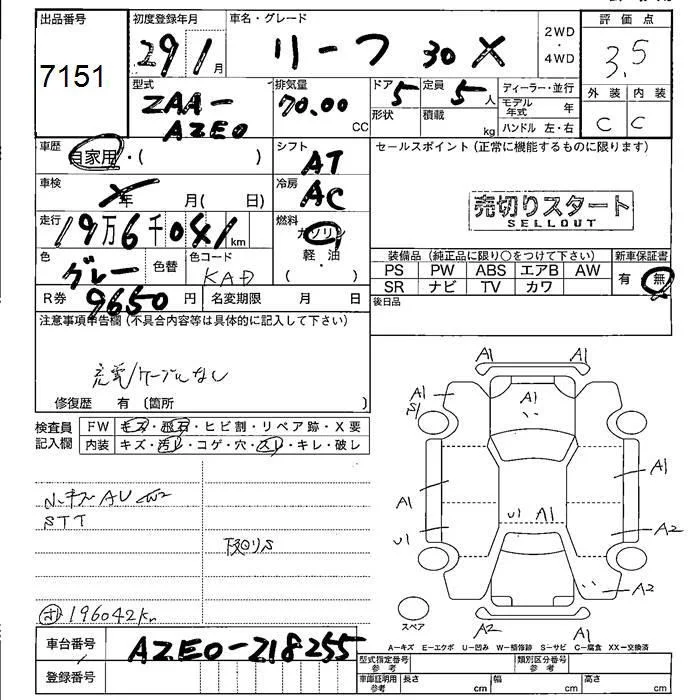 出品番号 初度登録年月 車名・グレード 評価点
7151 29 1月 リーフ 30X 2WD・4WD 3.5
型式 排気量 ドア 定員 ディーラー・並行 外装 内装
ZAA- 70.00 CC 5 5人 モデル年式 年 C C
AZE0 形状 積載 kg ハンドル 左・右
車歴 自家用・( ) シフト AT セールスポイント (正常に機能するものに限ります)
車検 年 月( 日) 冷房 AC
売切りスタート
SELLOUT
走行 19万6千041km 燃料 ガソリン
軽・油
色 グレー 色替 色コード KAD
装備品 (純正品に限り○をつけて下さい) 新車保証書
PS PW ABS エアB AW 有 無
SR ナビ TV カワ
R券 9650円 名変期限 月 日 後日品
注意事項申告欄 (不具合内容等は具体的に記入して下さい)
充電ケーブルなし
修復歴 有 〔箇所 〕
検査員記入欄 FW キズ・飛石・ヒビ割・リペア跡・X要
内装 キズ・汚レ・コゲ・穴・スレ・キレ・破レ
A1 A1
A1 A1 A1
S1
A1 A1
U1 A1
U1 A2
A2
A2 A1
小キズAU
STT
下回りS
196042km
スペア
A-キズ E-エクボ U-凹み W-補修跡 S-サビ C-腐食 XX-交換済
車台番号 AZE0-218255
型式指定番号 参考 類別区分番号 参考
登録番号
車庫証明用 参考 長さ cm 幅 cm 高さ cm